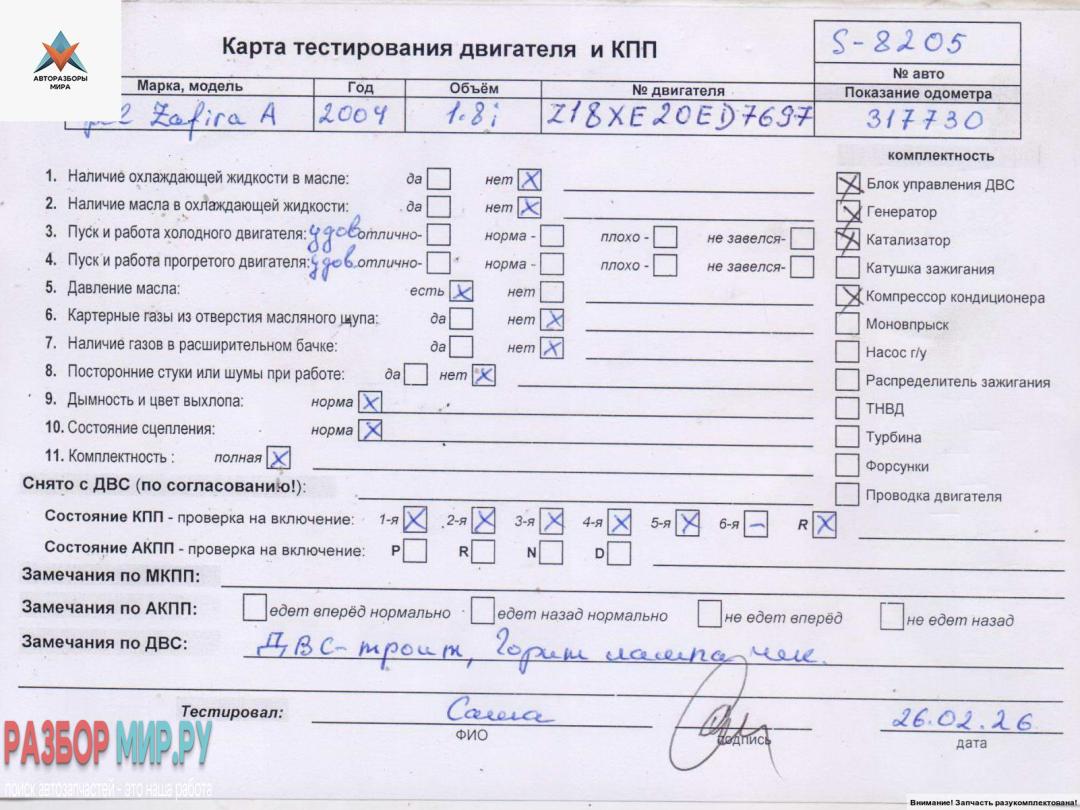 АВТОРАЗБОРЫ
МИРА
Карта тестирования двигателя и КПП
S-8205
№ авто
Марка, модель Год Объём № двигателя Показание одометра
Zafira A 2004 1.8i Z18XE20ED7697 317730
комплектность
1. Наличие охлаждающей жидкости в масле: да нет X
Блок управления ДВС
2. Наличие масла в охлаждающей жидкости: да нет X
Генератор
3. Пуск и работа холодного двигателя: удов отлично- норма - плохо - не завелся-
Катализатор
4. Пуск и работа прогретого двигателя: удов. отлично- норма - плохо - не завелся-
Катушка зажигания
5. Давление масла: есть X нет
Компрессор кондиционера
6. Картерные газы из отверстия масляного щупа: да нет X
Моновпрыск
7. Наличие газов в расширительном бачке: да нет X
Насос г/у
8. Посторонние стуки или шумы при работе: да нет X
Распределитель зажигания
9. Дымность и цвет выхлопа: норма X
ТНВД
10. Состояние сцепления: норма X
Турбина
11. Комплектность : полная X
Форсунки
Снято с ДВС (по согласованию!):
Проводка двигателя
Состояние КПП - проверка на включение: 1-я X 2-я X 3-я X 4-я X 5-я X 6-я – R X
Состояние АКПП - проверка на включение: P R N D
Замечания по МКПП:
Замечания по АКПП: едет вперёд нормально едет назад нормально не едет вперёд не едет назад
Замечания по ДВС: ДВС-троит, Горит лампа чек.
Тестировал: Саша 26.02.26
ФИО подпись дата
РАЗБОРМИР.РУ
поиск автозапчастей - это наша работа
Внимание! Запчасть разукомплектована!